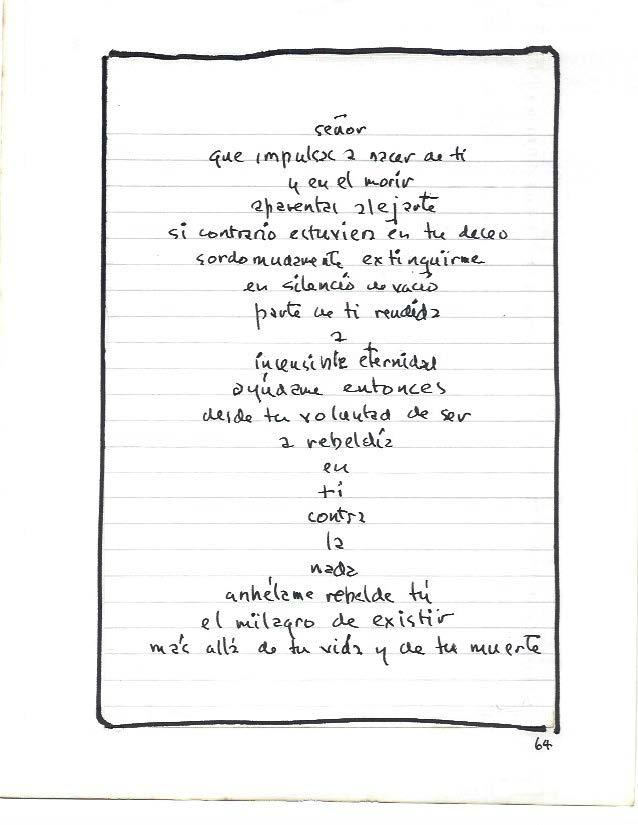 señor
que impulsas a nacer de ti
y en el morir
aparentas alejarte
si contrario estuviera en tu deseo
sordomudamente extinguirme
en silencio de vacío
parte de ti rendida
a
insensible eternidad
ayúdame entonces
desde tu voluntad de ser
a rebeldía
en
ti
contra
la
nada
anhélame rebelde tú
el milagro de existir
más allá de tu vida y de tu muerte
64